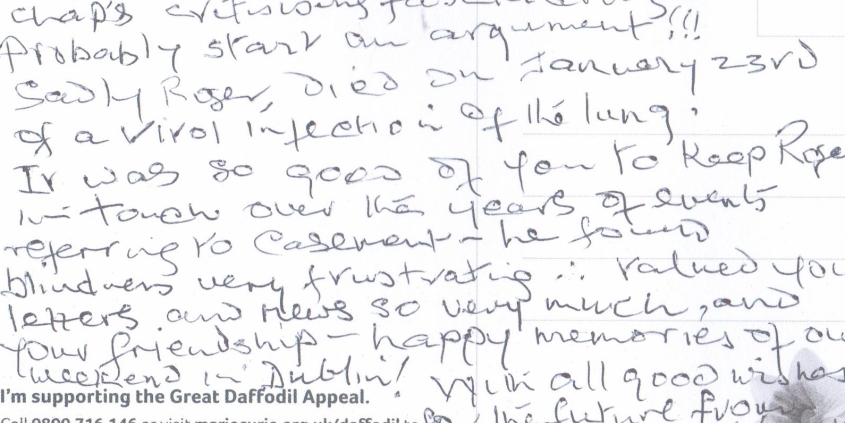 chap's critisising
Probably start an argument!!!
Sadly Roger, Died on January 23rd
of a virol infection of the lung.
It was so good of you to keep Roge
in-touch over the years of events
referring to Casement - he found
blindness very frustrating ∴ valued you
letters and news so very much, and
your friendship - happy memories of ou
weekend in Dublin! With all good wishes
I'm supporting the Great Daffodil Appeal.
for the future from